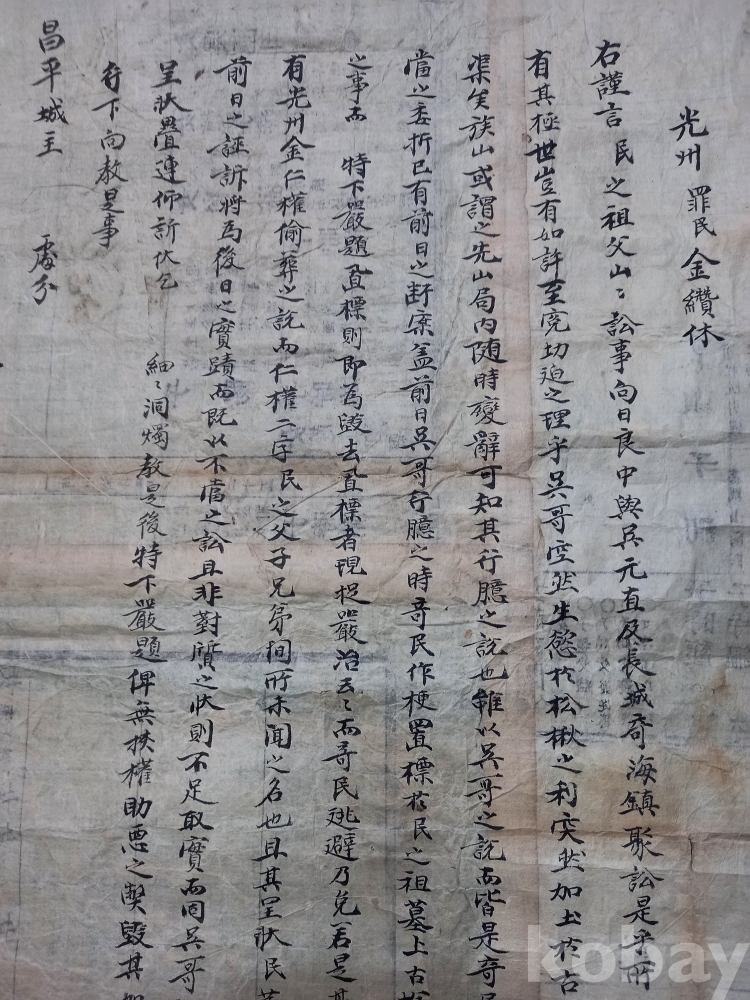 光州 罪民 金纘休
右謹言 民之祖父山〻訟事向日良中與吳元直及長城奇海鎭聚訟是乎所
有其極世豈有如許至寃切迫之理乎吳哥空然生慾於松楸之利突然加土於古
渠矣族山或謂之先山局內隨時變辭可知其行臆之說也雖以吳哥之說而皆是奇民
當之委折已有前日之斷案盖前日吳哥行臆之時奇民作梗置標於民之祖墓上古
之事而 特下嚴題置標則卽爲毁去置標者現捉嚴治云〻而奇民逃避乃免若是
有光州金仁權偷葬之說而仁權二字民之父子兄弟間所未聞之名也且其呈狀民
前日之誣訴將爲後日之實蹟而旣以不當之訟且非對質之狀則不足取實而同吳哥
呈狀疊連仰訴伏乞
細〻洞燭敎是後特下嚴題俾無挾權助惡之弊毁其
行下向敎是事
昌平城主 處分
kobay